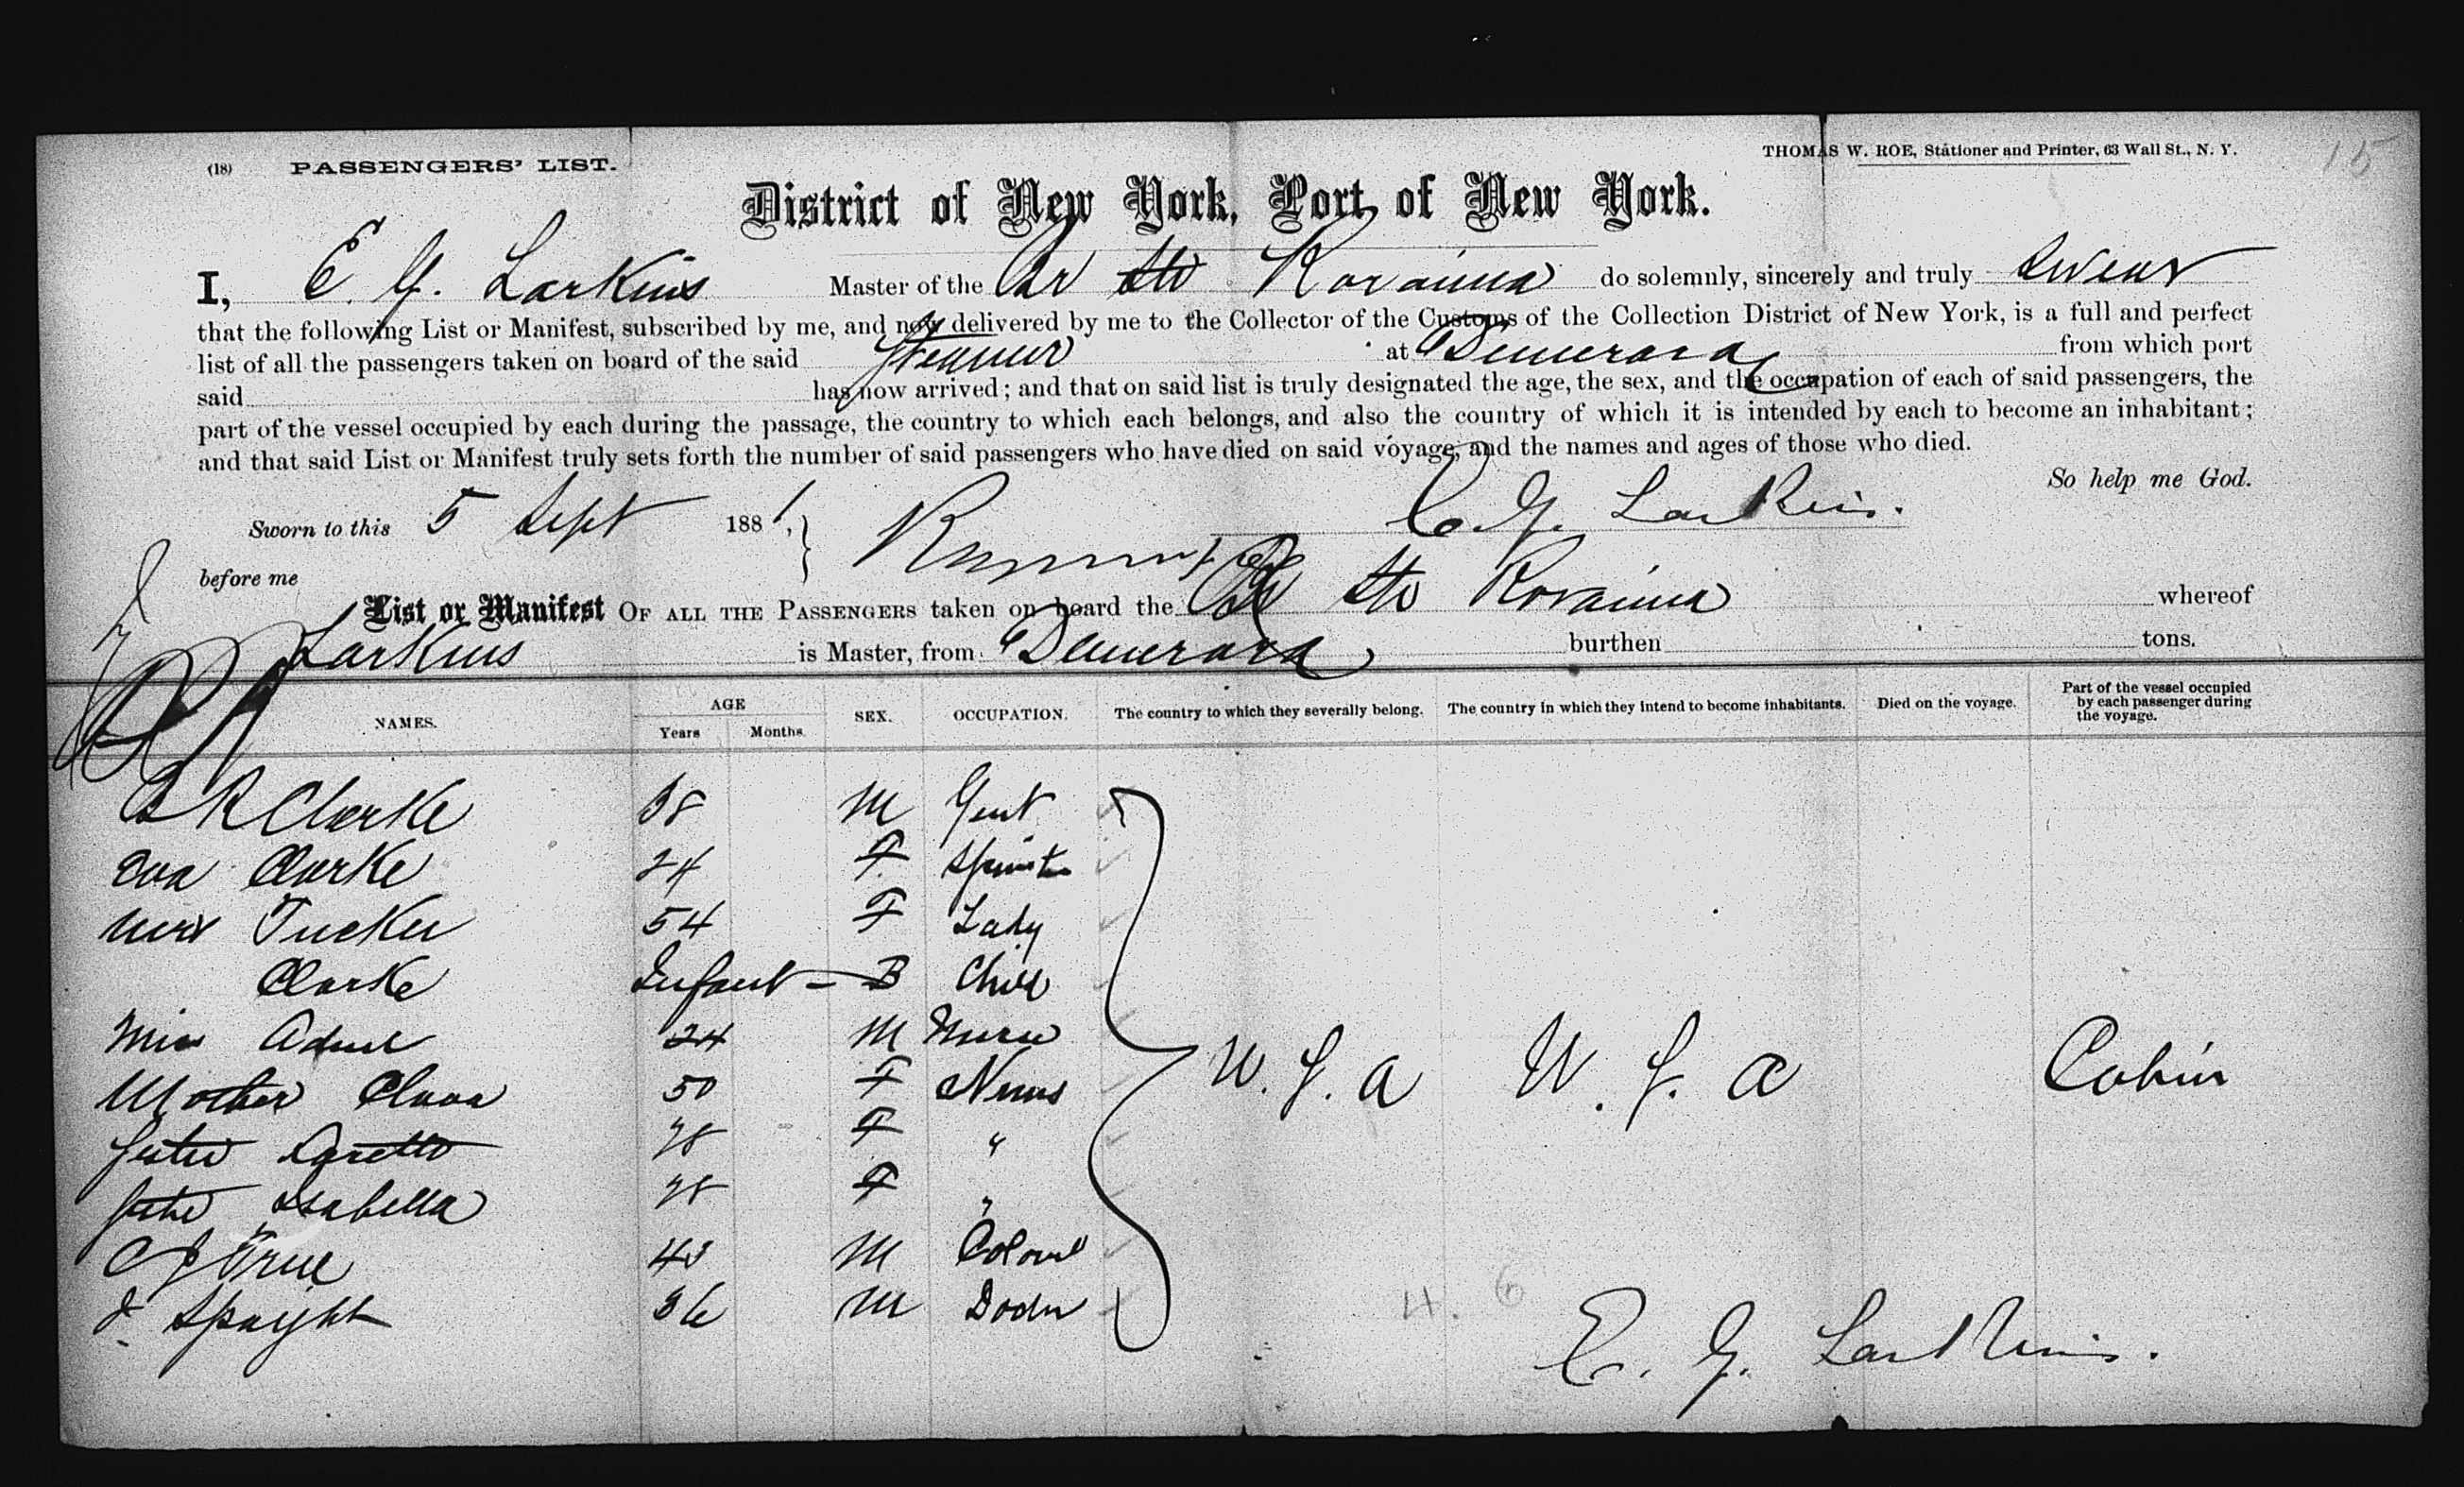 15
(18) PASSENGERS' LIST.
THOMAS W. ROE, Stationer and Printer, 63 Wall St., N. Y.
District of New York, Port of New York.
I, E. G. Larkins Master of the Br Str Roraima do solemnly, sincerely and truly swear
that the following List or Manifest, subscribed by me, and now delivered by me to the Collector of the Customs of the Collection District of New York, is a full and perfect
list of all the passengers taken on board of the said Steamer at Demerara from which port
said has now arrived; and that on said list is truly designated the age, the sex, and the occupation of each of said passengers, the
part of the vessel occupied by each during the passage, the country to which each belongs, and also the country of which it is intended by each to become an inhabitant;
and that said List or Manifest truly sets forth the number of said passengers who have died on said voyage, and the names and ages of those who died.
So help me God.
Sworn to this 5 Sept 1881, E. G. Larkins.
before me
List or Manifest OF ALL THE PASSENGERS taken on board the Br Str Roraima whereof
Larkins is Master, from Demerara burthen tons.
NAMES. AGE Years Months. SEX. OCCUPATION. The country to which they severally belong. The country in which they intend to become inhabitants. Died on the voyage. Part of the vessel occupied by each passenger during the voyage.
B R Clarke 38 M Gent
Eva Clarke 24 F Spinster
Mrs Tucker 54 F Lady
Clarke Infant - B Child
Miss 24 M Nurse
Mother Clara 50 F Nuns U. S. A U. S. A Cabin
Sister Loretto 28 F "
Sister Isabella 28 F "
True 43 M
J. Spaight 36 M Doctr
4. 6
E. G. Larkins.